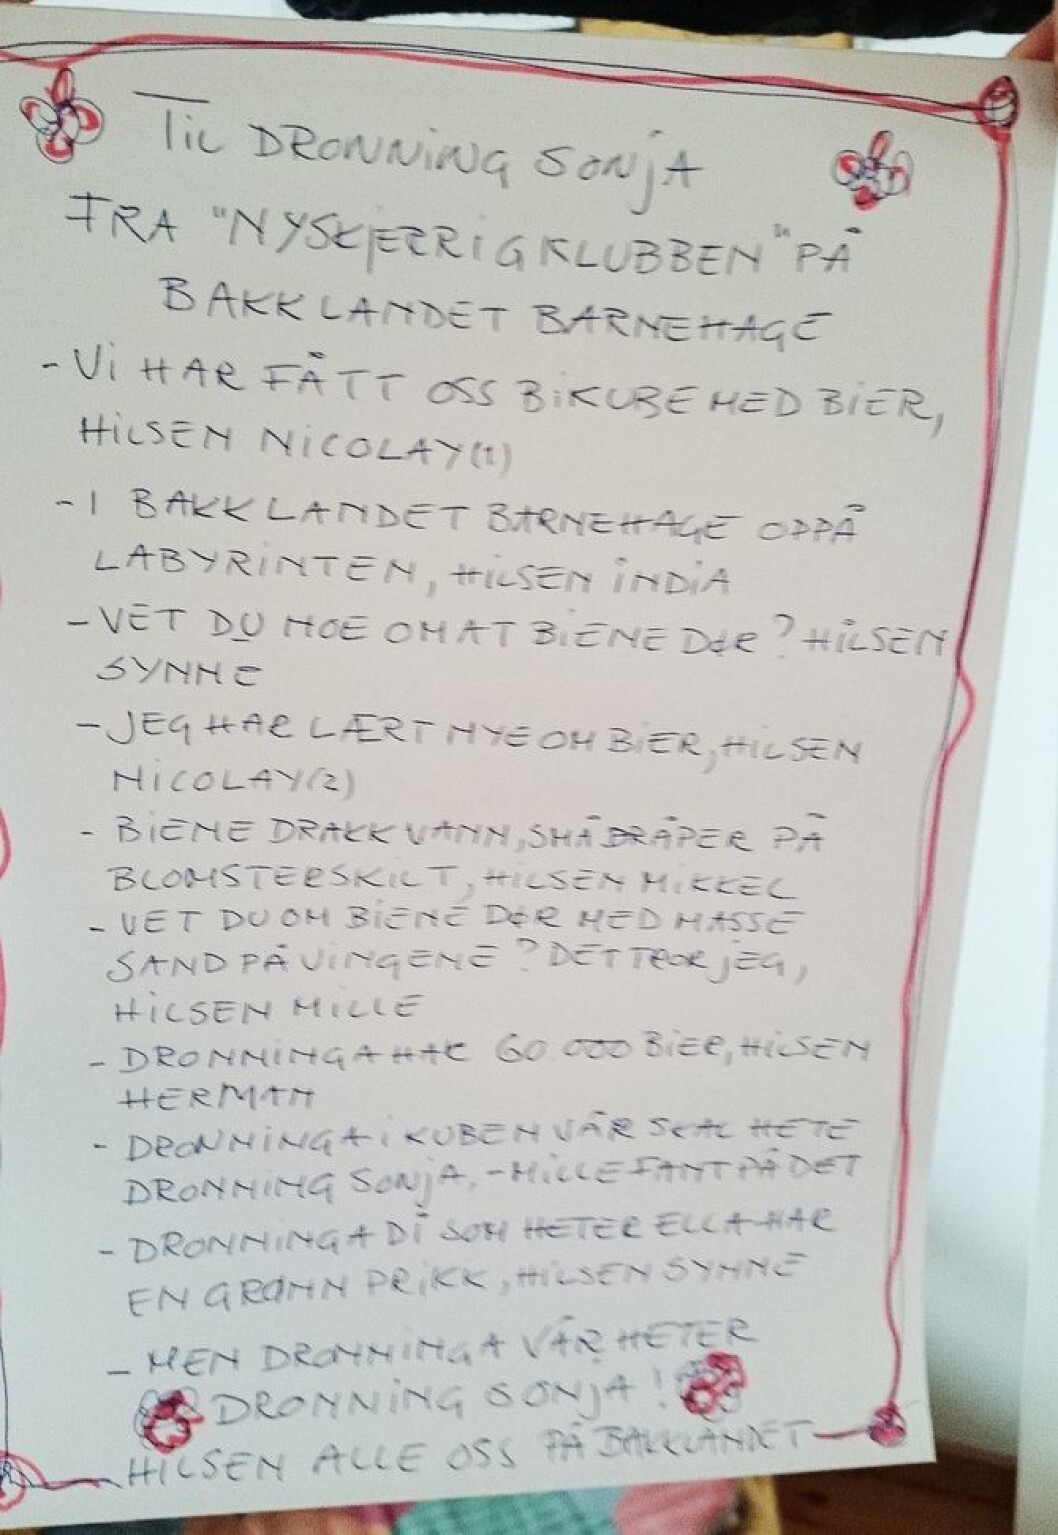 TIL DRONNING SONJA
FRA "NYSKJERRIGKLUBBEN" PÅ
BAKKLANDET BARNEHAGE
- VI HAR FÅTT OSS BIKUBE MED BIER,
HILSEN NICOLAY(1)
- I BAKKLANDET BARNEHAGE OPPÅ
LABYRINTEN, HILSEN INDIA
- VET DU NOE OM AT BIENE DØR? HILSEN
SYNNE
- JEG HAR LÆRT MYE OM BIER, HILSEN
NICOLAY(2)
- BIENE DRAKK VANN, SMÅDRÅPER PÅ
BLOMSTERSKILT, HILSEN MIKKEL
- VET DU OM BIENE DØR MED MASSE
SAND PÅ VINGENE? DET TROR JEG,
HILSEN MILLE
- DRONNINGA HAR 60 000 BIER, HILSEN
HERMAN
- DRONNINGA I KUBEN VÅR SKAL HETE
DRONNING SONJA, - MILLE FANT PÅ DET
- DRONNINGA DI SOM HETER ELLA HAR
EN GRØNN PRIKK, HILSEN SYNNE
- MEN DRONNINGA VÅR HETER
DRONNING SONJA!
HILSEN ALLE OSS PÅ BAKKLANDET